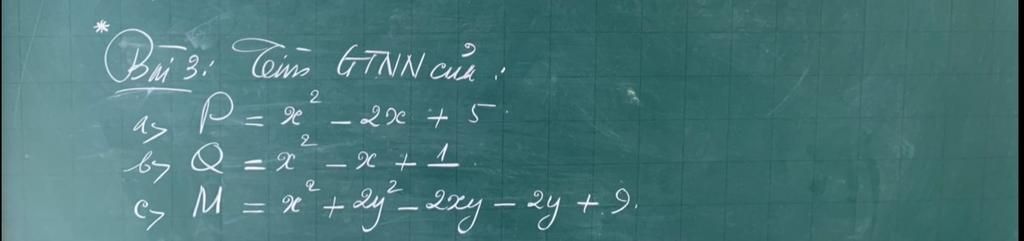 * Bài 3: Tìm GTNN của:
a> P = x² - 2x + 5.
b> Q = x² - x + 1.
c> M = x² + 2y² - 2xy - 2y + 9.